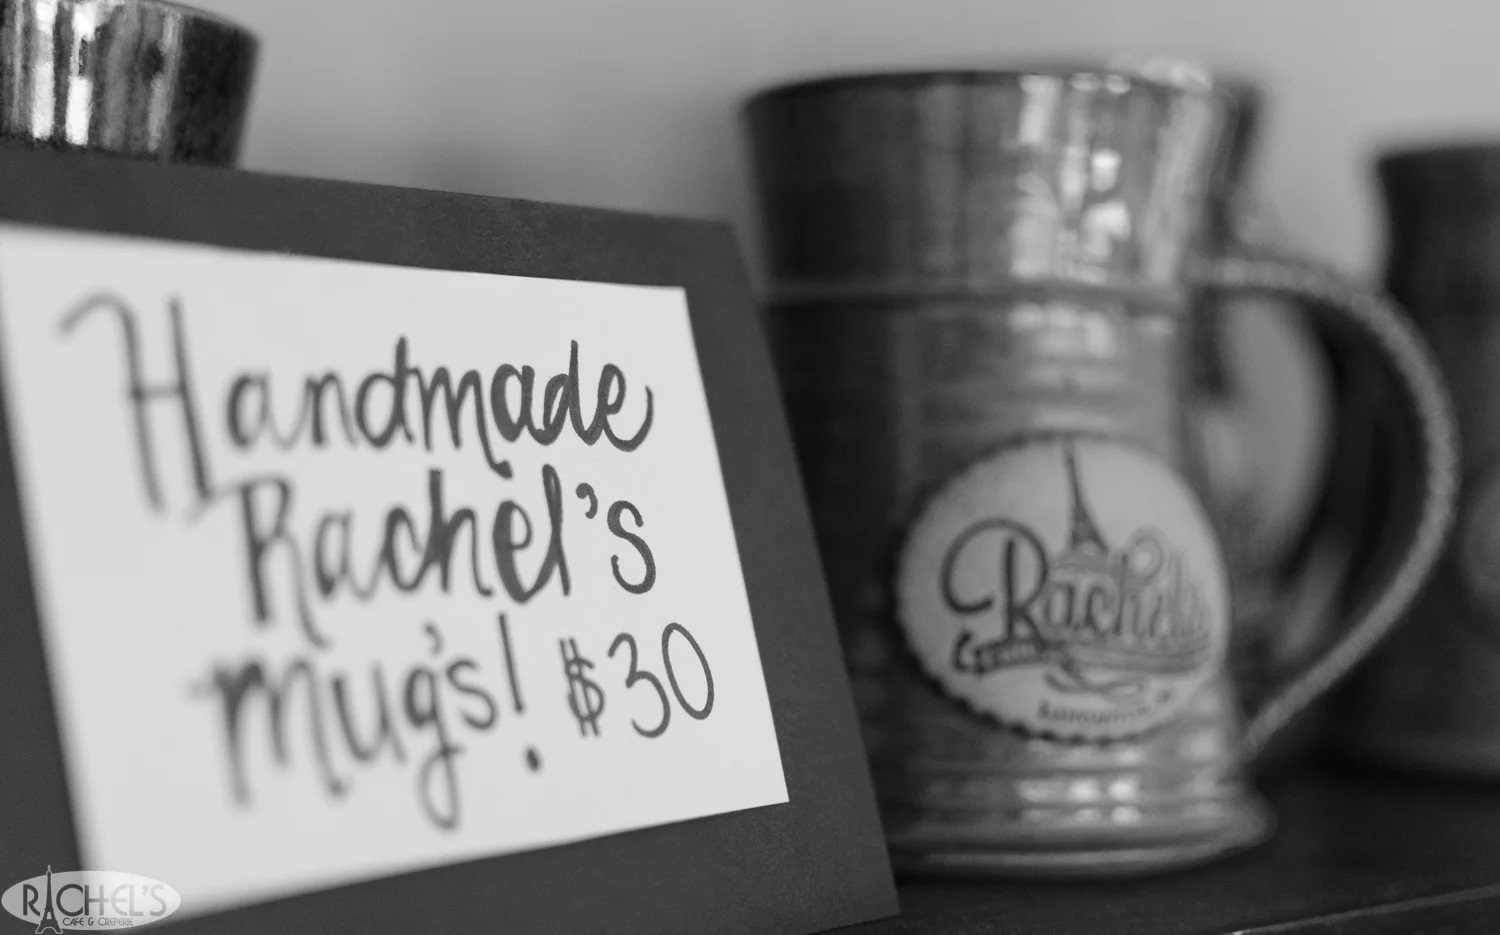 Handmade
Rachel's
mug's! $30
Rachel's
RACHEL'S
CAFE & CREPERIE